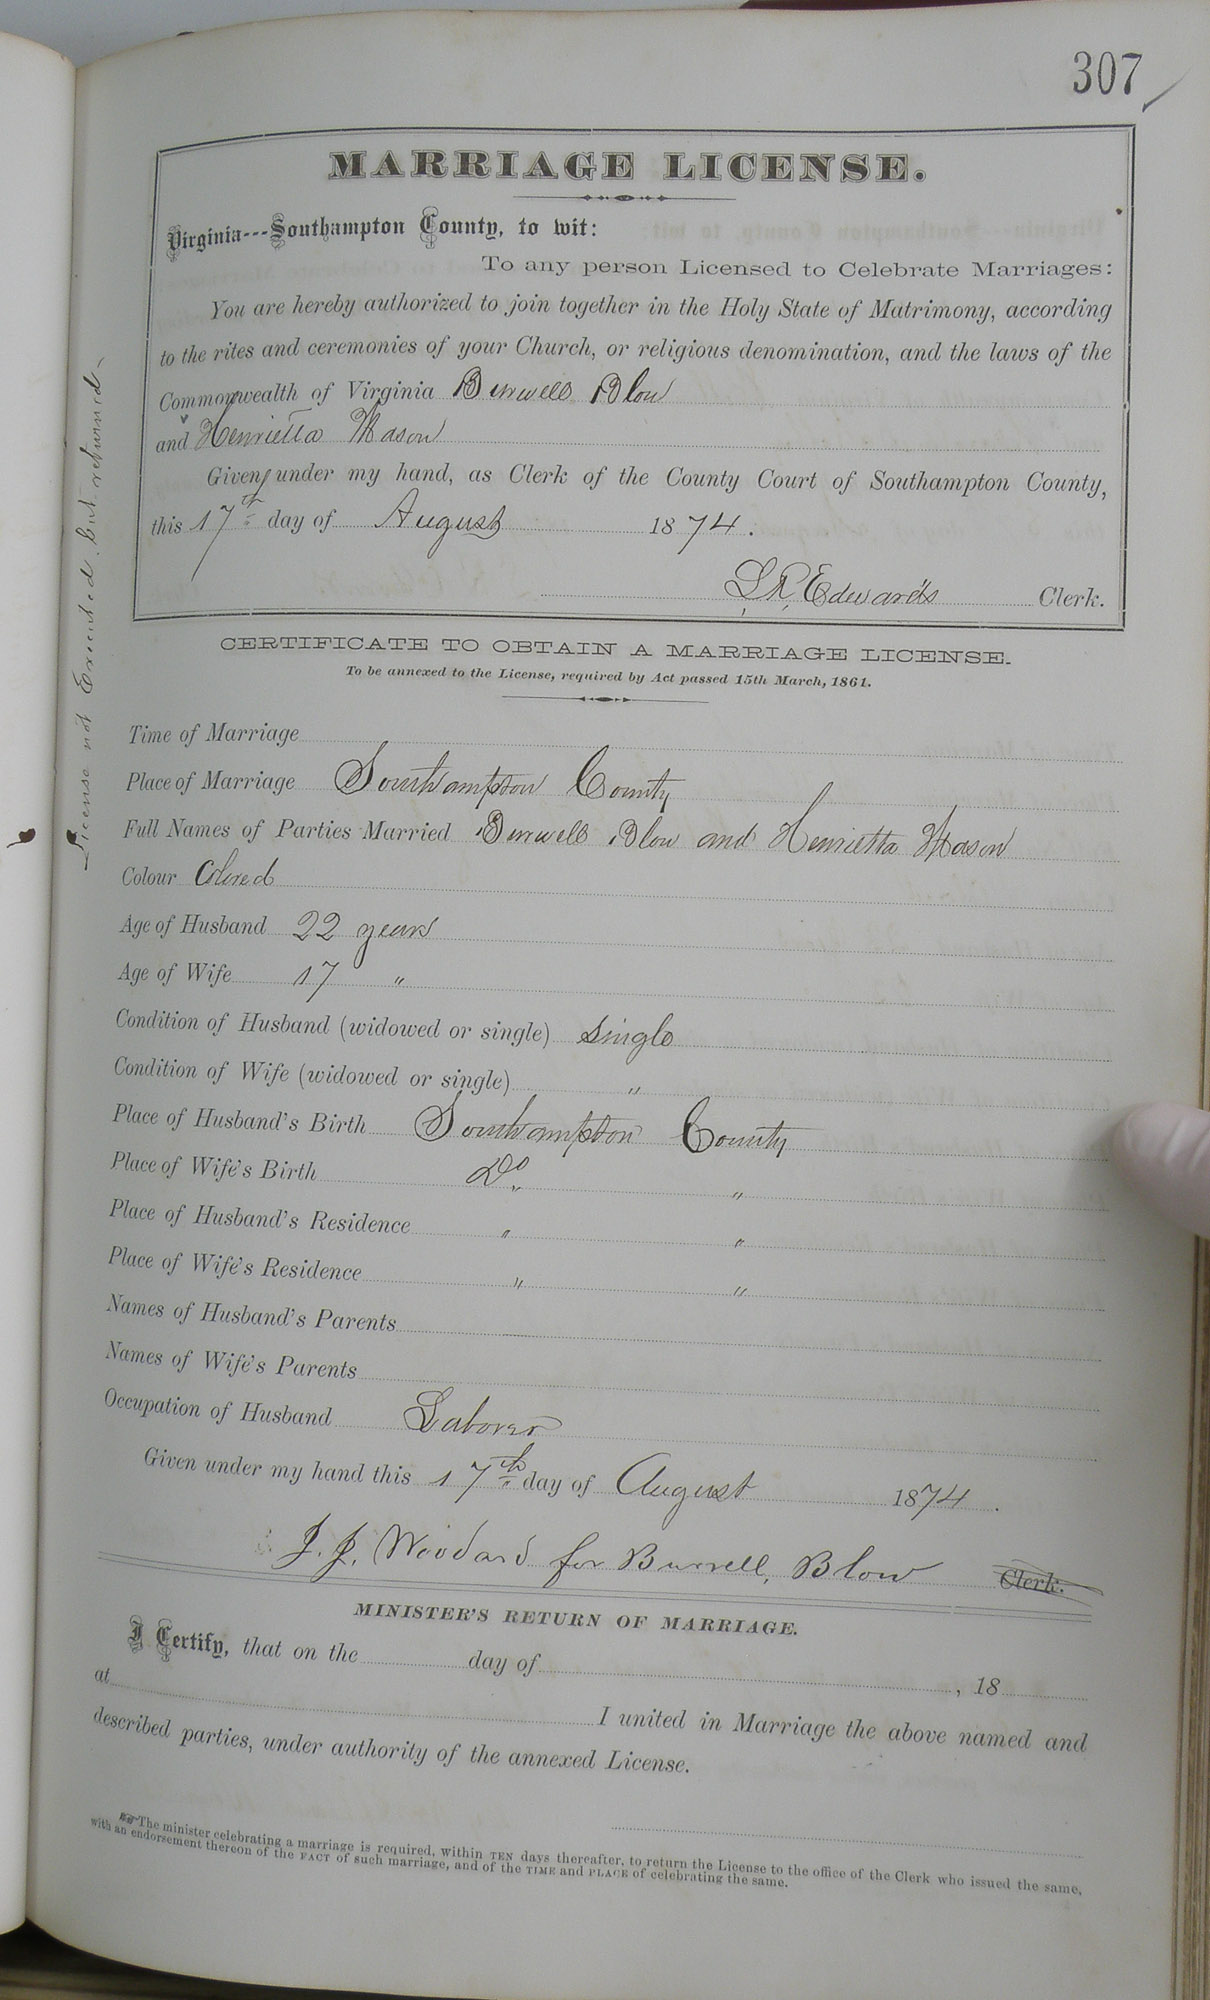 307
MARRIAGE LICENSE.
Virginia---Southampton County, to wit:
To any person Licensed to Celebrate Marriages:
You are hereby authorized to join together in the Holy State of Matrimony, according
to the rites and ceremonies of your Church, or religious denomination, and the laws of the
Commonwealth of Virginia Burwell Blow
and Henrietta Mason
Given under my hand, as Clerk of the County Court of Southampton County,
this 17th day of August 1874.
L. R. Edwards Clerk.
License not Executed but returned-
CERTIFICATE TO OBTAIN A MARRIAGE LICENSE.
To be annexed to the License, required by Act passed 15th March, 1861.
Time of Marriage
Place of Marriage Southampton County
Full Names of Parties Married Burwell Blow and Henrietta Mason
Colour Colored
Age of Husband 22 years
Age of Wife 17 "
Condition of Husband (widowed or single) single
Condition of Wife (widowed or single) "
Place of Husband's Birth Southampton County
Place of Wife's Birth Do "
Place of Husband's Residence " "
Place of Wife's Residence " "
Names of Husband's Parents
Names of Wife's Parents
Occupation of Husband Laborer
Given under my hand this 17th day of August 1874.
J. J. Woodard for Burrell, Blow Clerk.
MINISTER'S RETURN OF MARRIAGE.
I Certify, that on the day of , 18
at I united in Marriage the above named and
described parties, under authority of the annexed License.
The minister celebrating a marriage is required, within TEN days thereafter, to return the License to the office of the Clerk who issued the same,
with an endorsement thereon of the FACT of such marriage, and of the TIME and PLACE of celebrating the same.